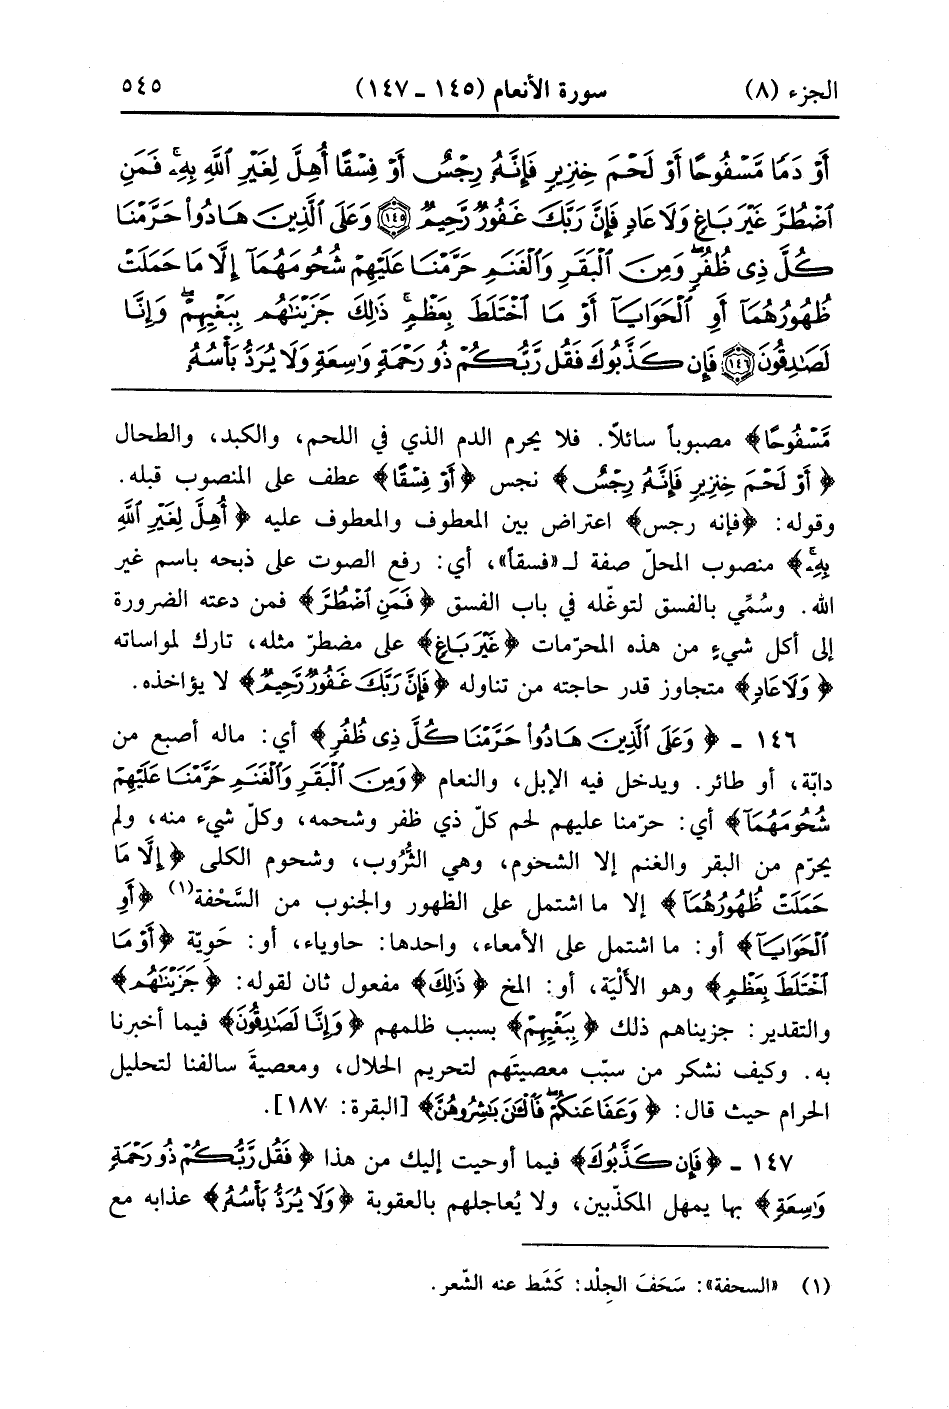 الجزء (٨) سورة الأنعام (١٤٥ ـ ١٤٧) ٥٤٥
أَوْ دَمًا مَّسْفُوحًا أَوْ لَحْمَ خِنزِيرٍ فَإِنَّهُۥ رِجْسٌ أَوْ فِسْقًا أُهِلَّ لِغَيْرِ ٱللَّهِ بِهِۦۚ فَمَنِ
ٱضْطُرَّ غَيْرَ بَاغٍ وَلَا عَادٍ فَإِنَّ رَبَّكَ غَفُورٌ رَّحِيمٌ ﴿١٤٥﴾ وَعَلَى ٱلَّذِينَ هَادُوا۟ حَرَّمْنَا
كُلَّ ذِى ظُفُرٍۖ وَمِنَ ٱلْبَقَرِ وَٱلْغَنَمِ حَرَّمْنَا عَلَيْهِمْ شُحُومَهُمَآ إِلَّا مَا حَمَلَتْ
ظُهُورُهُمَآ أَوِ ٱلْحَوَايَآ أَوْ مَا ٱخْتَلَطَ بِعَظْمٍۚ ذَٰلِكَ جَزَيْنَٰهُم بِبَغْيِهِمْۖ وَإِنَّا
لَصَٰدِقُونَ ﴿١٤٦﴾ فَإِن كَذَّبُوكَ فَقُل رَّبُّكُمْ ذُو رَحْمَةٍ وَٰسِعَةٍ وَلَا يُرَدُّ بَأْسُهُۥ
مَّسْفُوحًا﴾ مصبوباً سائلاً. فلا يحرم الدم الذي في اللحم، والكبد، والطحال
﴿أَوْ لَحْمَ خِنزِيرٍ فَإِنَّهُۥ رِجْسٌ﴾ نجس ﴿أَوْ فِسْقًا﴾ عطف على المنصوب قبله.
وقوله: ﴿فإنه رجس﴾ اعتراض بين المعطوف والمعطوف عليه ﴿أُهِلَّ لِغَيْرِ ٱللَّهِ
بِهِۦۚ﴾ منصوب المحلّ صفة لـ«فسقاً»، أي: رفع الصوت على ذبحه باسم غير
الله. وسُمِّي بالفسق لتوغّله في باب الفسق ﴿فَمَنِ ٱضْطُرَّ﴾ فمن دعته الضرورة
إلى أكل شيءٍ من هذه المحرّمات ﴿غَيْرَ بَاغٍ﴾ على مضطرّ مثله، تارك لمواساته
﴿وَلَا عَادٍ﴾ متجاوز قدر حاجته من تناوله ﴿فَإِنَّ رَبَّكَ غَفُورٌ رَّحِيمٌ﴾ لا يؤاخذه.
١٤٦ ـ ﴿وَعَلَى ٱلَّذِينَ هَادُوا۟ حَرَّمْنَا كُلَّ ذِى ظُفُرٍ﴾ أي: ماله أصبع من
دابّة، أو طائر. ويدخل فيه الإبل، والنعام ﴿وَمِنَ ٱلْبَقَرِ وَٱلْغَنَمِ حَرَّمْنَا عَلَيْهِمْ
شُحُومَهُمَآ﴾ أي: حرّمنا عليهم لحم كلّ ذي ظفر وشحمه، وكلّ شيء منه، ولم
يحرّم من البقر والغنم إلا الشحوم، وهي الثُّرُوب، وشحوم الكلى ﴿إِلَّا مَا
حَمَلَتْ ظُهُورُهُمَآ﴾ إلا ما اشتمل على الظهور والجنوب من السَّحْفة(١) ﴿أَوِ
ٱلْحَوَايَآ﴾ أو: ما اشتمل على الأمعاء، واحدها: حاوياء، أو: حَوِيّة ﴿أَوْ مَا
ٱخْتَلَطَ بِعَظْمٍ﴾ وهو الأَلْيَة، أو: المخ ﴿ذَٰلِكَ﴾ مفعول ثان لقوله: ﴿جَزَيْنَٰهُم﴾
والتقدير: جزيناهم ذلك ﴿بِبَغْيِهِمْ﴾ بسبب ظلمهم ﴿وَإِنَّا لَصَٰدِقُونَ﴾ فيما أخبرنا
به. وكيف نشكر من سبّب معصيتَهم لتحريم الحلال، ومعصيةَ سالفنا لتحليل
الحرام حيث قال: ﴿وَعَفَا عَنكُمْۖ فَٱلْـَٰٔنَ بَٰشِرُوهُنَّ﴾ [البقرة: ١٨٧].
١٤٧ ـ ﴿فَإِن كَذَّبُوكَ﴾ فيما أوحيت إليك من هذا ﴿فَقُل رَّبُّكُمْ ذُو رَحْمَةٍ
وَٰسِعَةٍ﴾ بها يمهل المكذّبين، ولا يُعاجلهم بالعقوبة ﴿وَلَا يُرَدُّ بَأْسُهُۥ﴾ عذابه مع
(١) «السحفة»: سَحَفَ الجِلْد: كَشَط عنه الشّعر.